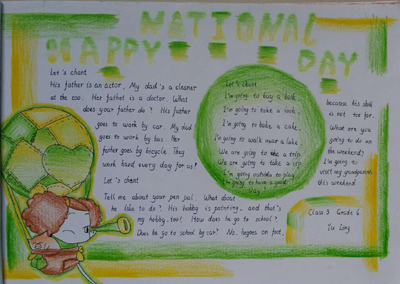 NATIONAL
HAPPY
DAY
Let's chant
His father is an actor, My dad's a cleaner
at the zoo. Her father is a doctor. What
does your father do? His father
goes to work by car. My dad
goes to work by bus. Her
father goes by bicycle. They
work hard every day for us!
Let's chant
Tell me about your pen pal. What about
he like to do? His hobby is painting, and that's
my hobby too! How does he go to school?
Does he go to school by car? No, he goes on foot,
Let's chant
I'm going to buy a book.
I'm going to take a look.
I'm going to baby a cake.
I'm going to walk near a lake
We are going to the a trip
We are going to take a sip
I'm going outside to play.
I'm going to have a good
day!
because his
is not too far.
What are you
going to do on
the weekend?
I'm going to
visit my grandparents
this weekend
Class 3 Grade 6